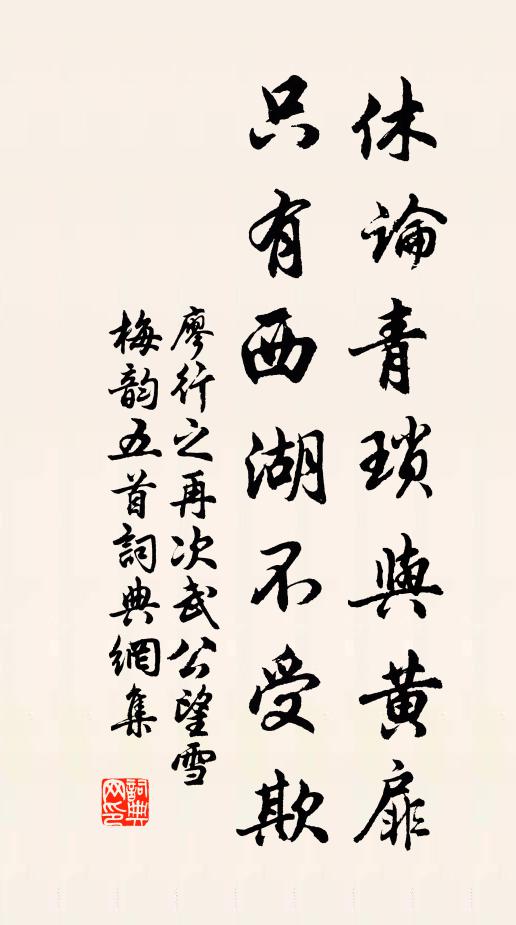 休論青瑣與黃扉
只有西湖不受欺
廖行之再次武公望雪
梅韵五首詞典網集
詞典網印